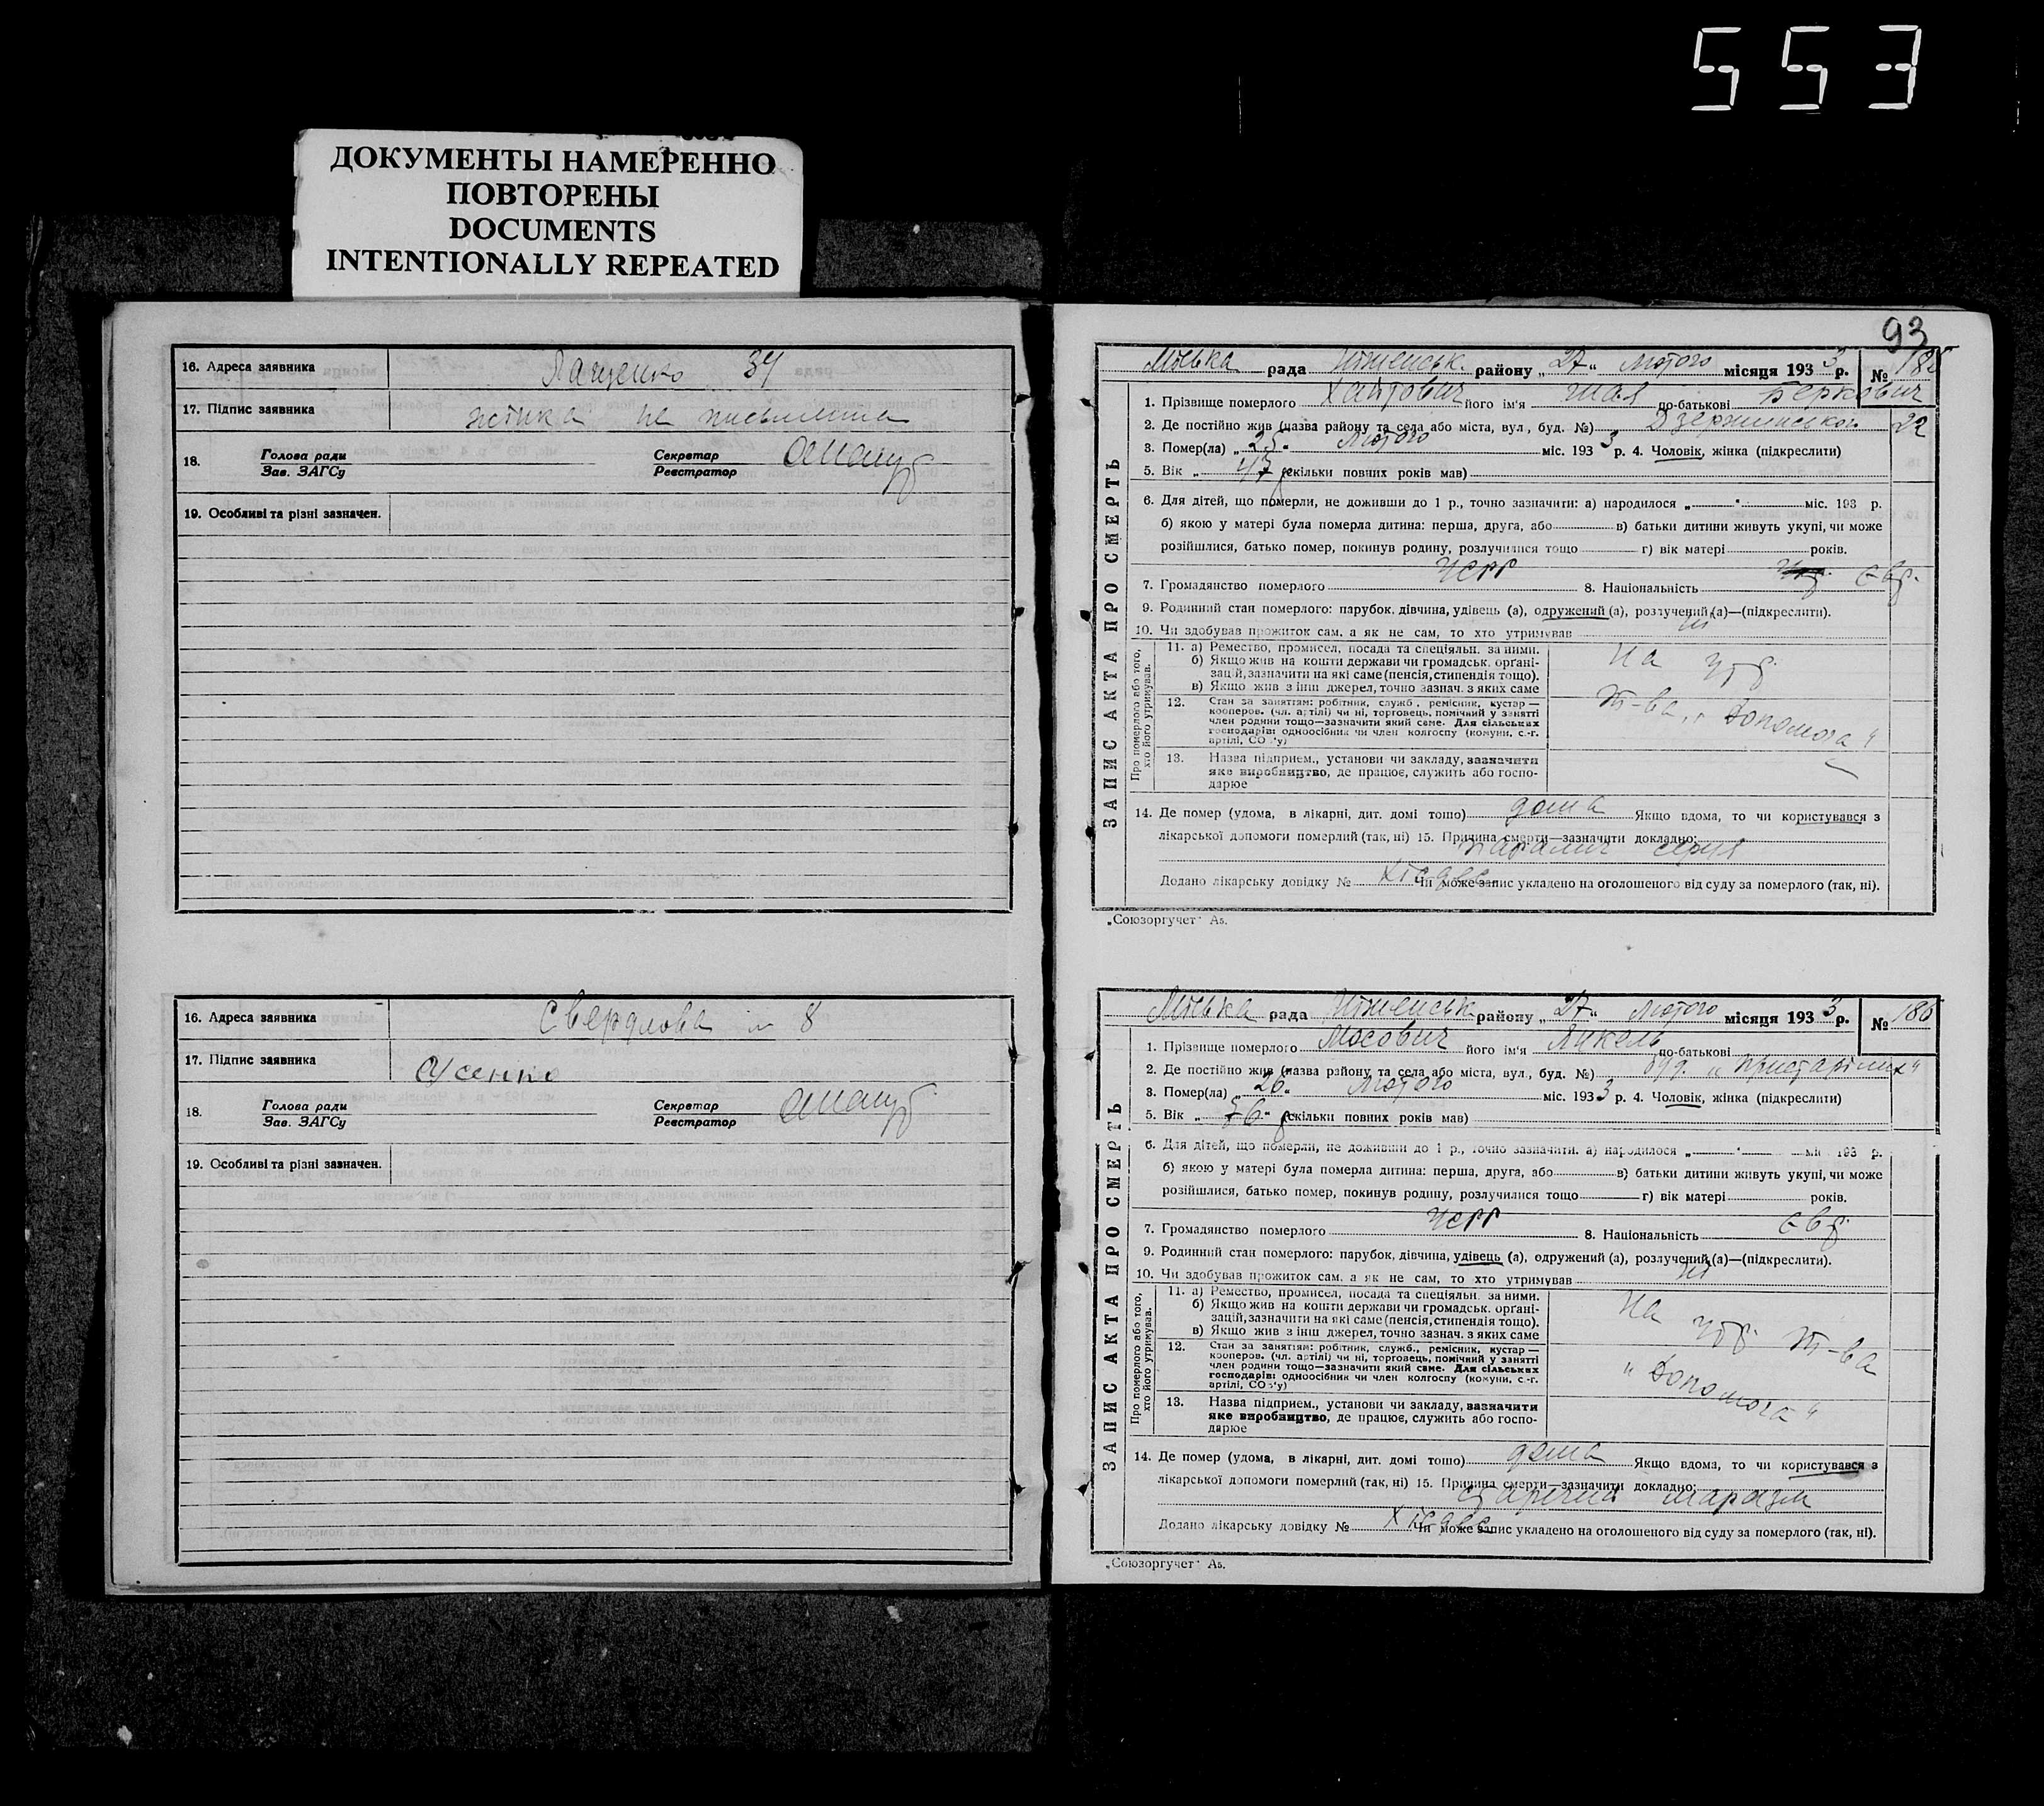 553
ДОКУМЕНТЫ НАМЕРЕННО
ПОВТОРЕНЫ
DOCUMENTS
INTENTIONALLY REPEATED
16. Адреса заявника 34
17. Підпис заявника не письменна
18. Голова ради Секретар
Зав. ЗАГСу Реєстратор
19. Особливі та різні зазначен.
16. Адреса заявника Свердлова 8
17. Підпис заявника Усенко
18. Голова ради Секретар
Зав. ЗАГСу Реєстратор
19. Особливі та різні зазначен.
93
ЗАПИС АКТА ПРО СМЕРТЬ
Міська рада Ніженськ. району „27“ Лютого місяця 1933 р. №
1. Прізвище померлого Хаїтович його ім'я Шая по-батькові Беркович
2. Де постійно жив (назва району та села або міста, вул., буд. №) Дзержинського 22
3. Помер(ла) „25“ Лютого міс. 1933 р. 4. Чоловік, жінка (підкреслити)
5. Вік „47 (скільки повних років мав)
6. Для дітей, що померли, не доживши до 1 р., точно зазначити: а) народилося „ “ міс. 193 р.
б) якою у матері була померла дитина: перша, друга, або в) батьки дитини живуть укупі, чи може
розійшлися, батько помер, покинув родину, розлучилися тощо г) вік матері років.
7. Громадянство померлого УСРР 8. Національність Євр.
9. Родинний стан померлого: парубок, дівчина, удівець (а), одружений (а), розлучений (а)—(підкреслити).
10. Чи здобував прожиток сам, а як не сам, то хто утримував ні
Про померлого або того, хто його утримував.
11. а) Ремество, промисел, посада та спеціяльн. за ними.
б) Якщо жив на кошти держави чи громадськ. орґані-
зацій, зазначити на які саме (пенсія, стипендія тощо).
в) Якщо жив з інш джерел, точно зазнач. з яких саме
На утр.
12. Стан за заняттям: робітник, служб., ремісник, кустар—
кооперов. (чл. артілі) чи ні, торговець, помічний у занятті
член родини тощо—зазначити який саме. Для сільських
господарів: одноосібник чи член колгоспу (комуни, с.-г.
артілі, СОЗ'у)
т-ва „Допомога“
13. Назва підприєм., установи чи закладу, зазначити
яке виробництво, де працює, служить або госпо-
дарює
14. Де помер (удома, в лікарні, дит. домі тощо) дома Якщо вдома, то чи користувався з
лікарської допомоги померлий (так, ні) 15. Причина смерти—зазначити докладно:
Параліч серця
Додано лікарську довідку № Чи може запис укладено на оголошеного від суду за померлого (так, ні).
„Союзоргучет“ А5.
ЗАПИС АКТА ПРО СМЕРТЬ
Міська рада Ніженськ. району „27“ Лютого місяця 1933 р. № 186
1. Прізвище померлого Мосович його ім'я Янкель по-батькові
2. Де постійно жив (назва району та села або міста, вул., буд. №) буд. „Пристарілих“
3. Помер(ла) „26“ Лютого міс. 1933 р. 4. Чоловік, жінка (підкреслити)
5. Вік „76“ (скільки повних років мав)
6. Для дітей, що померли, не доживши до 1 р., точно зазначити: а) народилося „ міс 193 р.
б) якою у матері була померла дитина: перша, друга, або в) батьки дитини живуть укупі, чи може
розійшлися, батько помер, покинув родину, розлучилися тощо г) вік матері років.
7. Громадянство померлого УСРР 8. Національність Євр.
9. Родинний стан померлого: парубок, дівчина, удівець (а), одружений (а), розлучений (а)—(підкреслити).
10. Чи здобував прожиток сам, а як не сам, то хто утримував ні
Про померлого або того, хто його утримував.
11. а) Ремество, промисел, посада та спеціяльн. за ними.
б) Якщо жив на кошти держави чи громадськ. орґані-
зацій, зазначити на які саме (пенсія, стипендія тощо).
в) Якщо жив з інш джерел, точно зазнач. з яких саме
На утр. т-ва
12. Стан за заняттям: робітник, служб., ремісник, кустар—
кооперов. (чл. артілі) чи ні, торговець, помічний у занятті
член родини тощо—зазначити який саме. Для сільських
господарів: одноосібник чи член колгоспу (комуни, с.-г.
артілі, СОЗ'у)
„Допомога“
13. Назва підприєм., установи чи закладу, зазначити
яке виробництво, де працює, служить або госпо-
дарює
14. Де помер (удома, в лікарні, дит. домі тощо) дома Якщо вдома, то чи користувався з
лікарської допомоги померлий (так, ні) 15. Причина смерти—зазначити докладно:
Старечий маразм
Додано лікарську довідку № Чи може запис укладено на оголошеного від суду за померлого (так, ні).
„Союзоргучет“ А5.